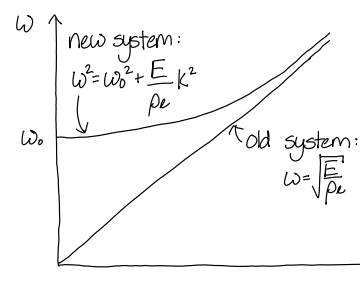 ω
new system:
ω²=ω₀²+ E/ρₑ K²
ω₀
old system:
ω=√E/ρₑ